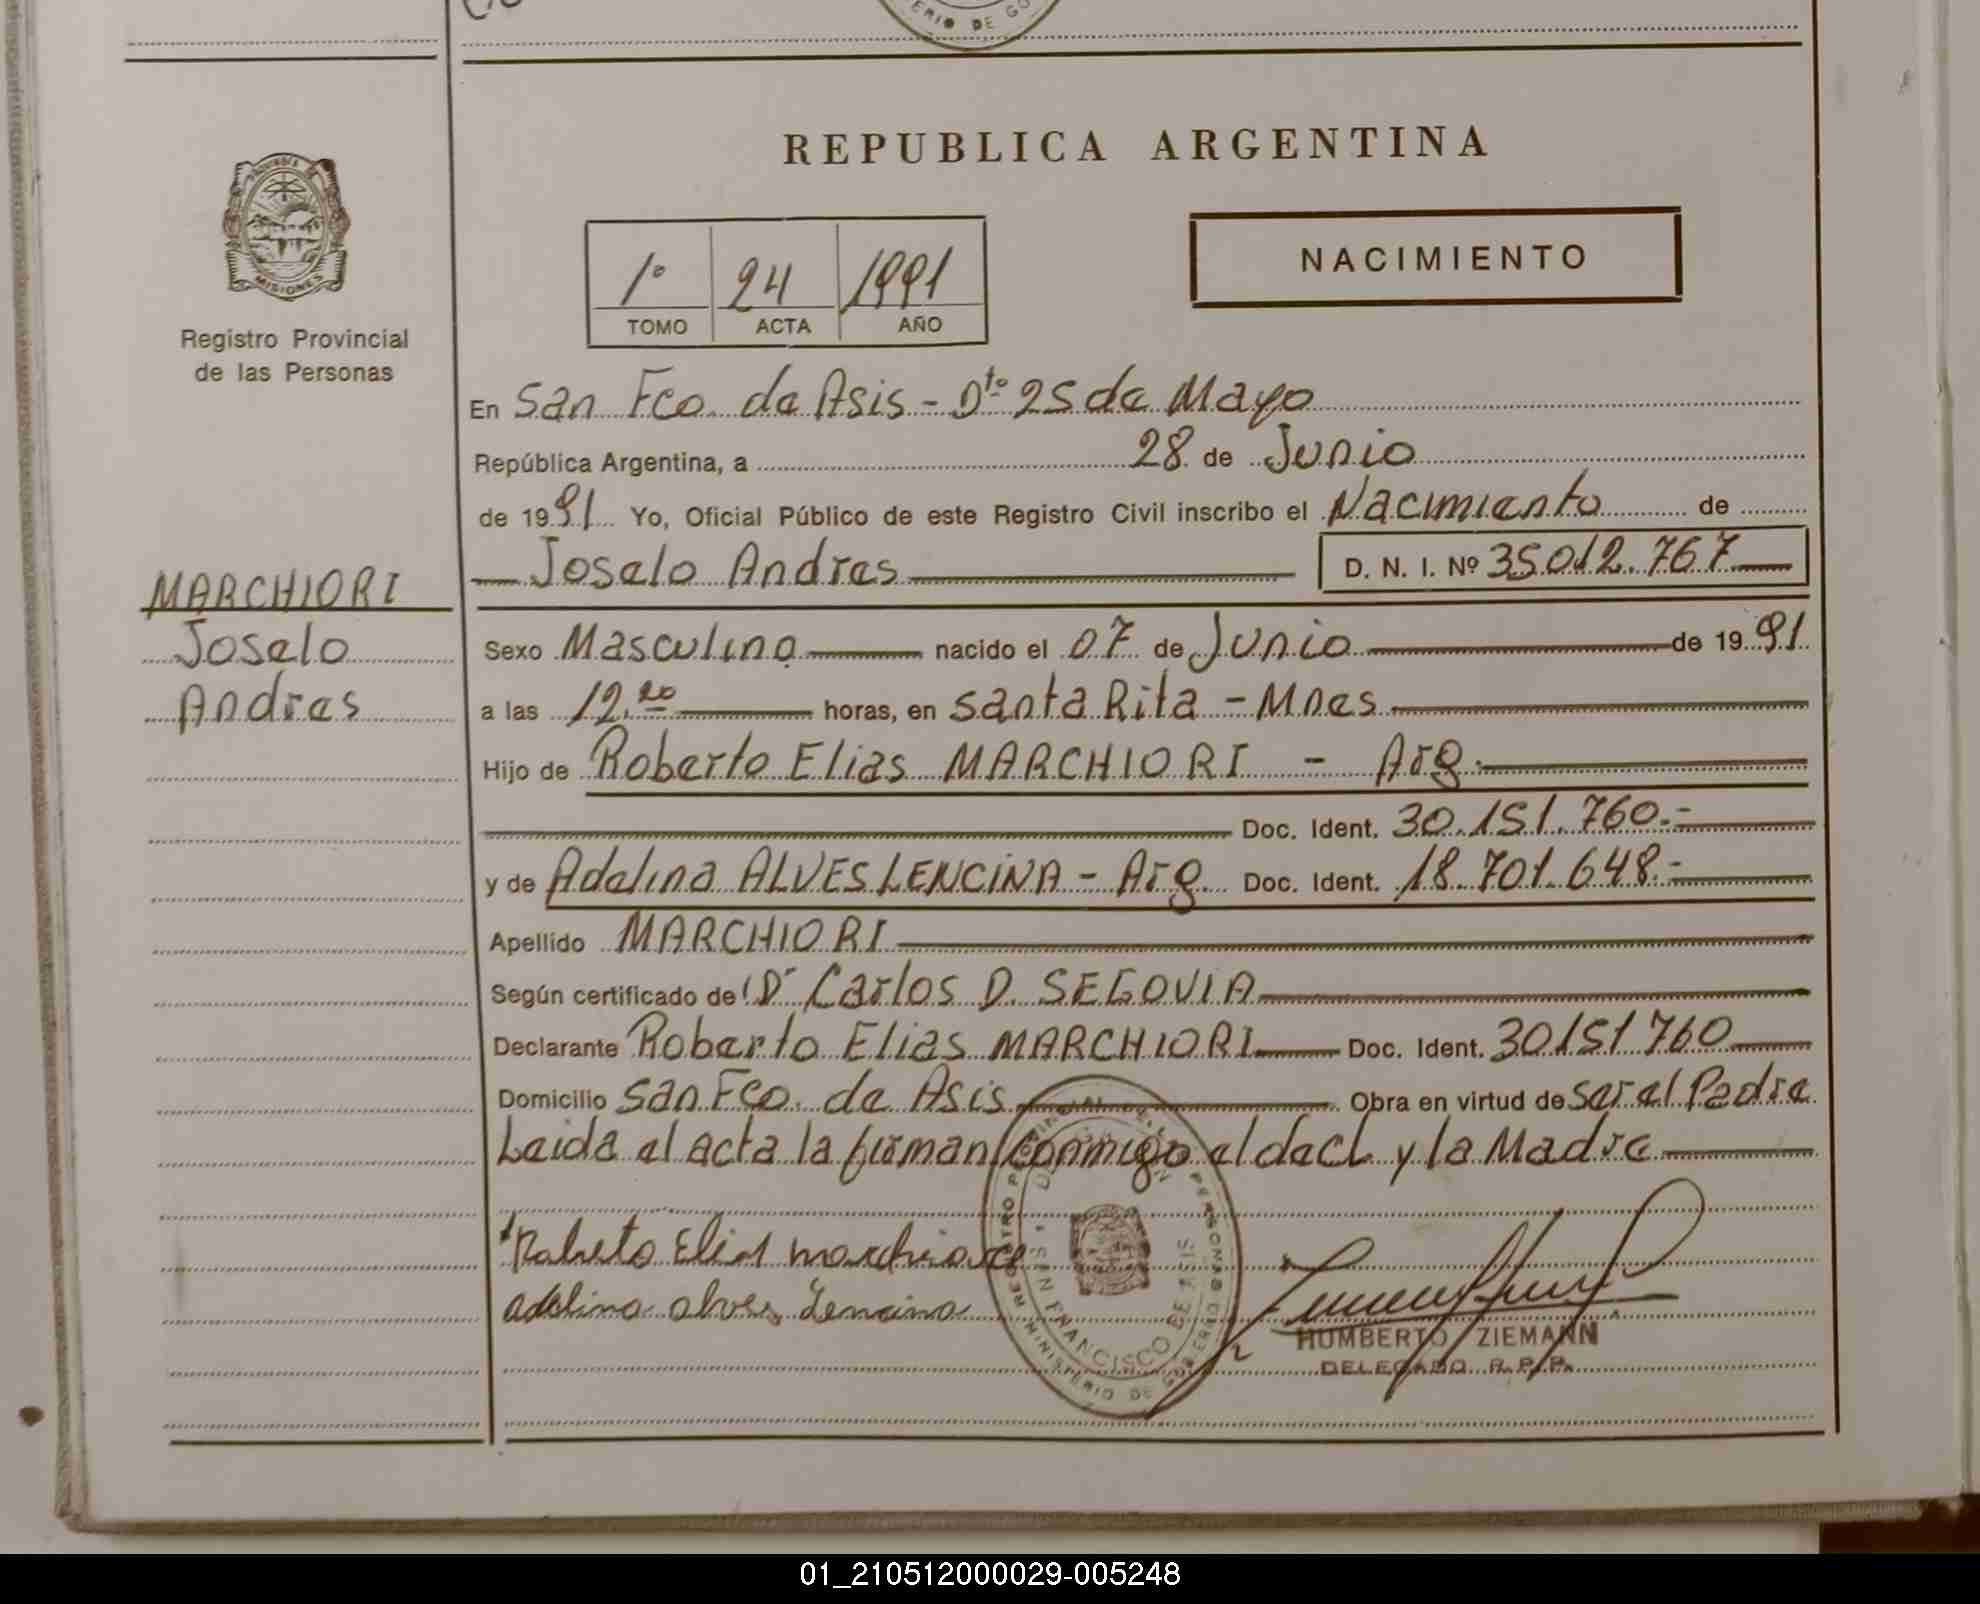 ERIO DE GO
REPUBLICA ARGENTINA
PROVINCIA
MISIONES
Registro Provincial
de las Personas
1º 24 1991
TOMO ACTA AÑO
NACIMIENTO
En San Fco. de Asis - Dto 25 de Mayo
República Argentina, a 28 de Junio
de 1991 Yo, Oficial Público de este Registro Civil inscribo el Nacimiento de
Joselo Andres D. N. I. Nº 35.012.767
MARCHIORI
Joselo
Andres
Sexo Masculino nacido el 07 de Junio de 1991
a las 12.20 horas, en Santa Rita - Mnes
Hijo de Roberto Elias MARCHIORI - Arg.
Doc. Ident. 30.151.760.-
y de Adelina ALVES LENCINA - Arg. Doc. Ident. 18.701.648.-
Apellido MARCHIORI
Según certificado de Dr Carlos D. SEGOVIA
Declarante Roberto Elias MARCHIORI Doc. Ident. 30151760
Domicilio San Fco. de Asis Obra en virtud de ser el Padre
Leida el acta la firman conmigo el decl. y la Madre
Roberto Elias marchiore
adelina alves Lencina
SAN FRANCISCO DE ASIS
MINISTERIO DE GOBIERNO
HUMBERTO ZIEMANN
DELEGADO R.P.P.
01_210512000029-005248